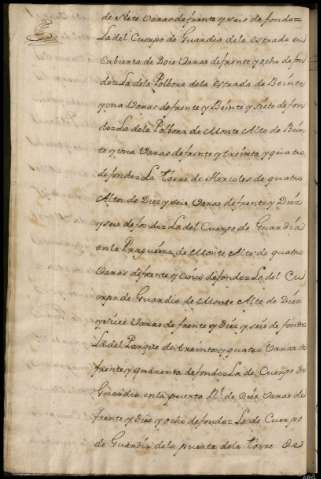 de siete Varas de frente y seis de fondo=
La del Cuerpo de Guardia dela estrada en
Cubierta de Doce Varas de frente y ocho de fon
do=La dela Polbora dela estrada de Beinte
y una Varas de frente y Beinte y Siete de fon
do=La dela Polbora de Monte Alto de Bein
te y una Varas de frente y treinta y quatro
de fondo=La torre de Hercoles de quatro
Altos de Diez y seis Varas de frente y Diez
y seis de fondo=La del Cuerpo de Guardia
en la de Monte Alto de quatro
Varas de frente y Cinco de fondo=La del Cu
erpo de Guardia de Monte Alto de Diez
y siete Varas de frente y Diez y seis de fondo=
La del Parque de treinta y quatro Varas de
frente y quarenta de fondo=La de Cuerpo de
Guardia en la puerta Rl de Diez Varas de
frente y Diez y ocho de fondo=La de Cuerpo
de Guardia dela puerta dela torre de